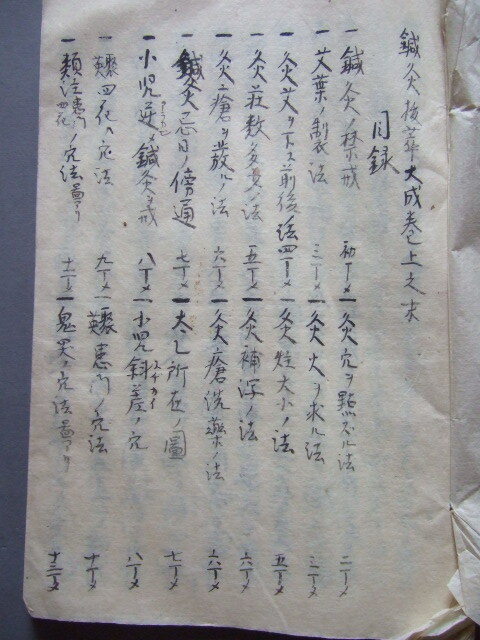 鍼灸抜萃大成巻上之末
目録
一鍼灸ノ禁戒 初丁メ
一灸穴ヲ點ズル法 二丁メ
一艾葉ノ製法 三丁メ
一灸火ヲ求ル法 三丁メ
一灸艾ヲ下ス前後ノ法 四丁メ
一灸炷大小ノ法 五丁メ
一灸荘数多少ノ法 五丁メ
一灸補瀉ノ法 六丁メ
一灸瘡ヲ發ルノ法 六丁メ
一灸瘡洗藥ノ法 六丁メ
一鍼灸忌日ノ傍通 七丁メ
一太乙所在ノ圖 七丁メ
一小児逆ノ鍼灸ヲ戒 八丁メ
一小児斜差ノ穴 スヂカイ 八丁メ
一驟四花ノ穴法 九丁メ
一驟患門ノ穴法 十丁メ
一類注患門四花ノ穴法圖アリ 十二丁メ
一鬼哭ノ穴法圖アリ 十三丁メ